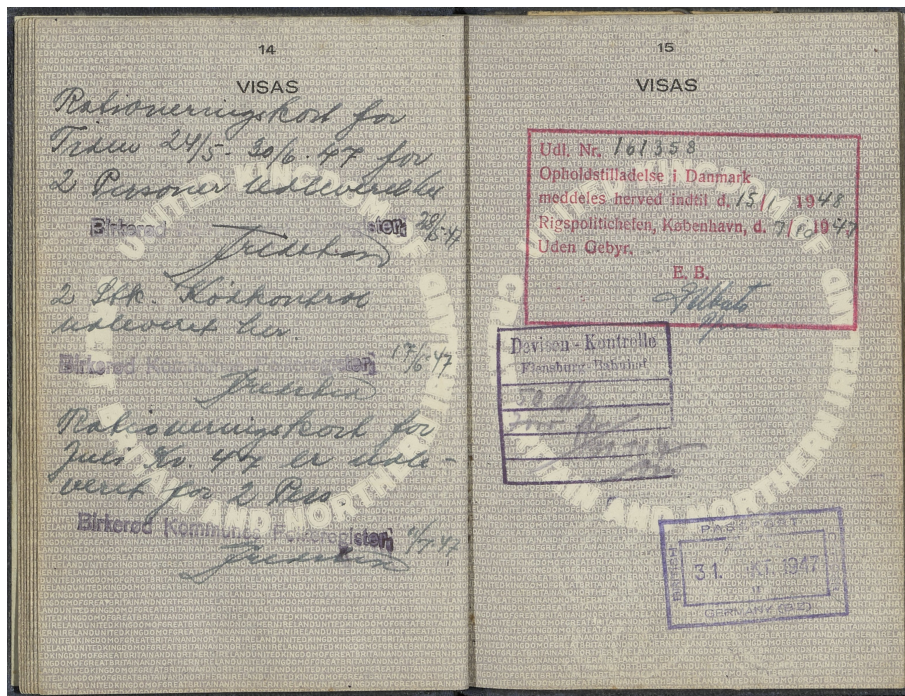 14
VISAS
Rationeringskort for
Tiden 24/5 - 30/6. 47 for
2 Personer udleveret her
Birkerød
2 Stk. Kødkontrol
udleveret her
Birkerød Kommunes Folkeregister 17/6 47
Rationeringskort for
Juli Kv. 47 er udle-
veret for 2 Pers
Birkerød Kommunes Folkeregister
15
VISAS
Udl. Nr. 161358
Opholdstilladelse i Danmark
meddeles herved indtil d. 15/1 1948
Rigspolitichefen, København, d. 7/10 1947
Uden Gebyr.
E. B.
Devisen-Kontrolle
Flensburg-Bahnhof
31. OKT. 1947
GERMANY
UNITED KINGDOM OF GREAT BRITAIN AND NORTHERN IRELAND
UNITED KINGDOM OF GREAT BRITAIN AND NORTHERN IRELAND